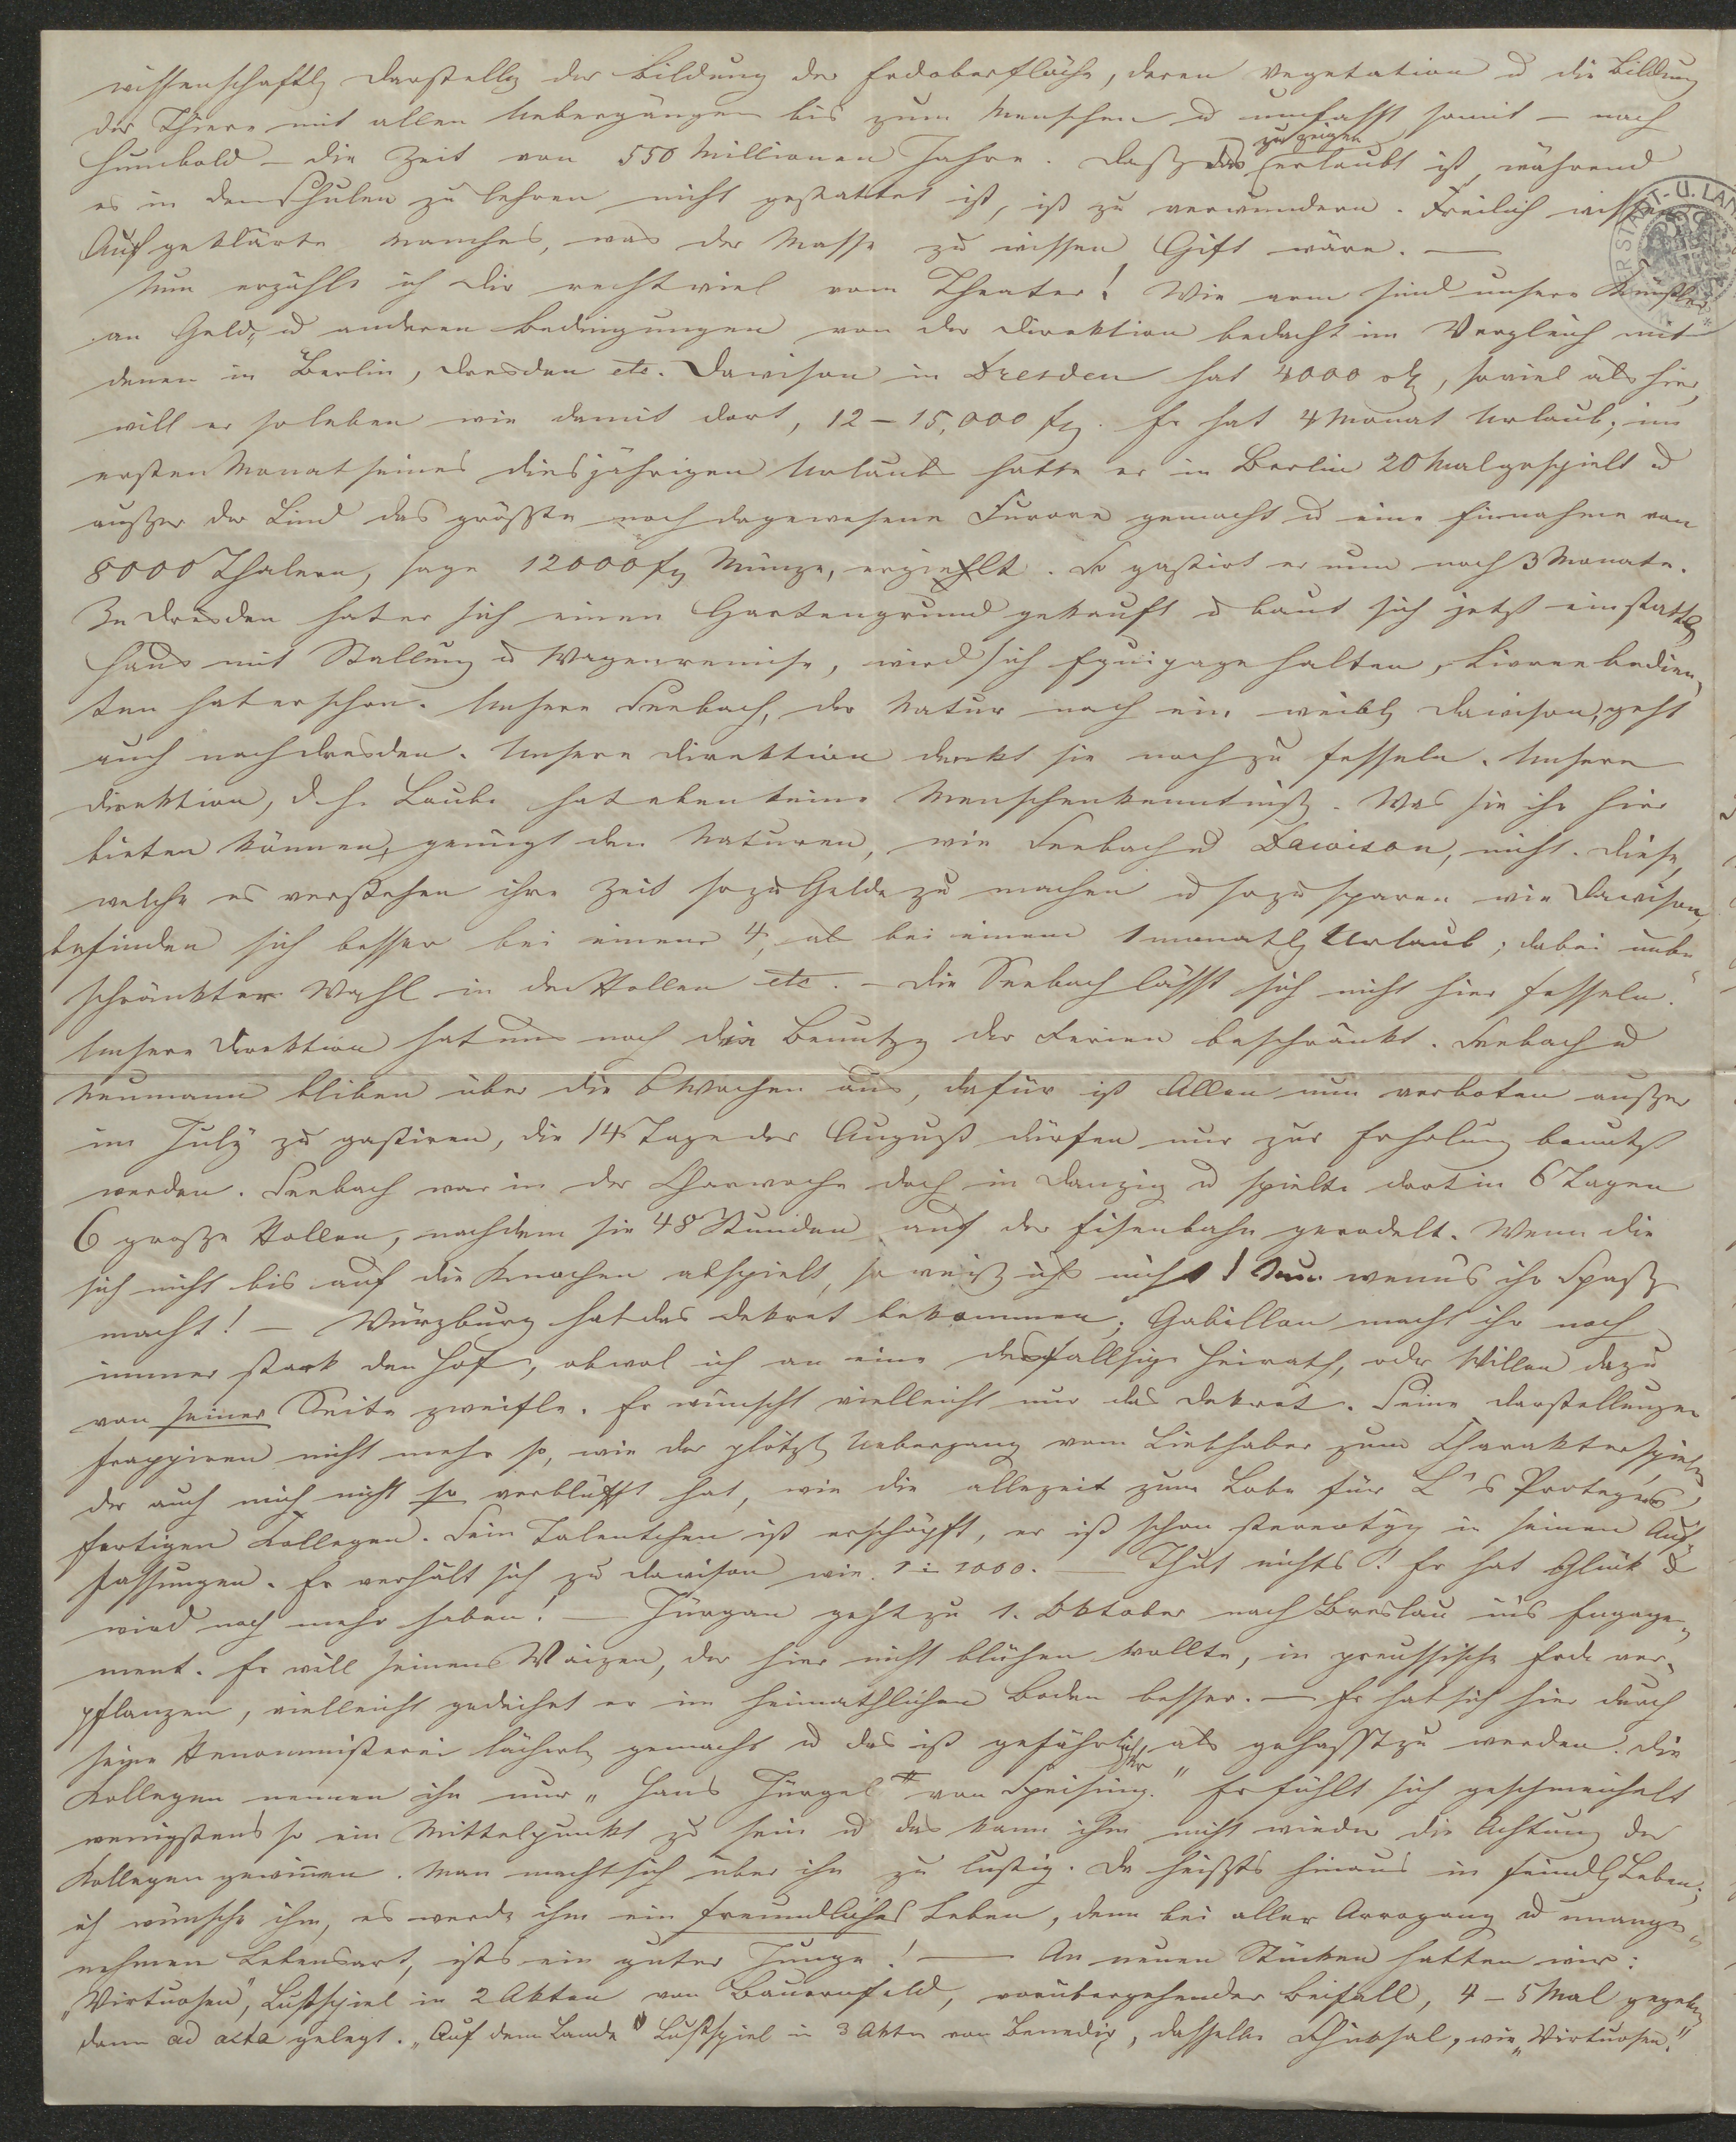 wissenschaftl. Darstellg der Bildung der Erdoberfläche, deren Vegetation u die Bildung
der Thiere mit allen Uebergängen bis zum Menschen u umfasst somit – nach
Humbold – die Zeit von 550 Millionen Jahre. Daß das zu zeigen erlaubt ist, während
es in den Schulen zu lehren nicht gestattet ist, ist zu verwundern. Freilich wissen
Aufgeklärte Manches, was der Masse zu wissen Gift wäre. —
Nun erzähle ich Dir recht viel vom Theater! Wie arm sind unsere Künstler
an Geld- u anderen Bedingungen von der Direktion bedacht im Vergleich mit
denen in Berlin, Dresden etc. Dawison in Dresden hat 4000 rth, soviel als hier,
will er so leben wie damit dort, 12–15,000 fl. Er hat 4 Monat Urlaub; im
ersten Monat seines diesjährigen Urlaubs hatte er in Berlin 20 Mal gespielt u
außer der Lind das größte noch dagewesene Furore gemacht u eine Einnahme von
8000 Thalern, sage 12000 fl Münze, erziehlt. So gastirt er nun noch 3 Monate.
In Dresden hat er sich einen Gartengrund gekauft u baut sich jetzt ein stattl
Haus mit Stallung u Wagenremise, wird sich Equipage halten, Livreebedien-
ten hat er schon. Unsere Seebach, der Natur nach ein weibl Dawison, geht
auch nach Dresden. Unsere Direktion denkt sie noch zu fesseln. Unsere
Direktion, d. h. Laube hat eben keine Menschenkenntniß. Was sie ihr hier
bieten können, genügt den Naturen, wie Seebach u Dawison, nicht. Diese,
welche es verstehen ihre Zeit so zu Gelde zu machen u so zu sparen wie Dawison,
befinden sich besser bei einem 4, als bei einem 1 monatl Urlaub; dabei unbe-
schränkter Wahl in den Rollen etc. – Die Seebach läßt sich nicht hier fesseln.
Unsere Direktion hat uns noch die Benutzg der Ferien beschränkt. Seebach u
Neumann blieben über die 6 Wochen aus, dafür ist Allen nun verboten außer
im July zu gastiren, die 14 Tage des August dürfen nur zur Erholung benutzt
werden. Seebach war in der Charwoche doch in Danzig u spielte dort in 6 Tagen
6 große Rollen, nachdem sie 48 Stunden auf der Eisenbahn geradelt. Wenn die
sich nicht bis auf die Knochen abspielt, so weiß ichs nicht! Nur wenns ihr Spaß
macht! – Würzburg hat das Dekret bekommen; Gabillon macht ihr noch
immer stark den Hof, obwol ich an eine desfallsige Heirath, oder Willen dazu
von seiner Seite zweifle. Er wünscht vielleicht nur das Dekret. Seine Darstellungen
frappiren nicht mehr so, wie der plötzl Uebergang vom Liebhaber zum Charakterspieler
der auch mich nicht so verblüfft hat, wie die allezeit zum Lobe für L's Protegés
fertigen Kollegen. Sein Talentchen ist erschöpft, er ist schon stereotyp in seinen Auf-
fassungen. Er verhält sich zu Dawison wie 1 : 1000. — Thut nichts! Er hat Glück &
wird noch mehr haben! — Jürgan geht zu 1. Oktober nach Breslau ins Engage-
ment. Er will seinen Waizen, der hier nicht blühen wollte, in preußische Erde ver-
pflanzen, vielleicht gedeihet er im heimathlichen Boden besser. – Er hat sich hier durch
seine Renommisterei lächerl gemacht u das ist gefährlicher, als gehaßt zu werden. Die
Kollegen nennen ihn nur „Hans Jürgel von Speising." Er fühlt sich geschmeichelt
wenigstens so ein Mittelpunkt zu sein u das kann ihm nicht wieder die Achtung der
Kollegen gewinnen. Man macht sich über ihn zu lustig. Da heißts hinaus in feindl Leben;
ich wünsche ihm, es werde ihm ein freundliches Leben, denn bei aller Arroganz u unange-
nehmen Lebensart, ists ein guter Junge! — An neuen Stücken hatten wir:
„Virtuosen", Lustspiel in 2 Akten von Bauernfeld, vorübergehender Beifall, 4–5 Mal gegeben,
dann ad acta gelegt. „Auf dem Lande" Lustspiel in 3 Akten von Benedix, dasselbe Schicksal, wie „Virtuosen."